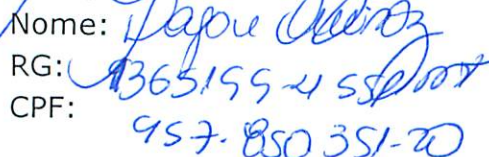 Nome:
RG: 1365199-4 SSP/MT
CPF:
957.850351-20